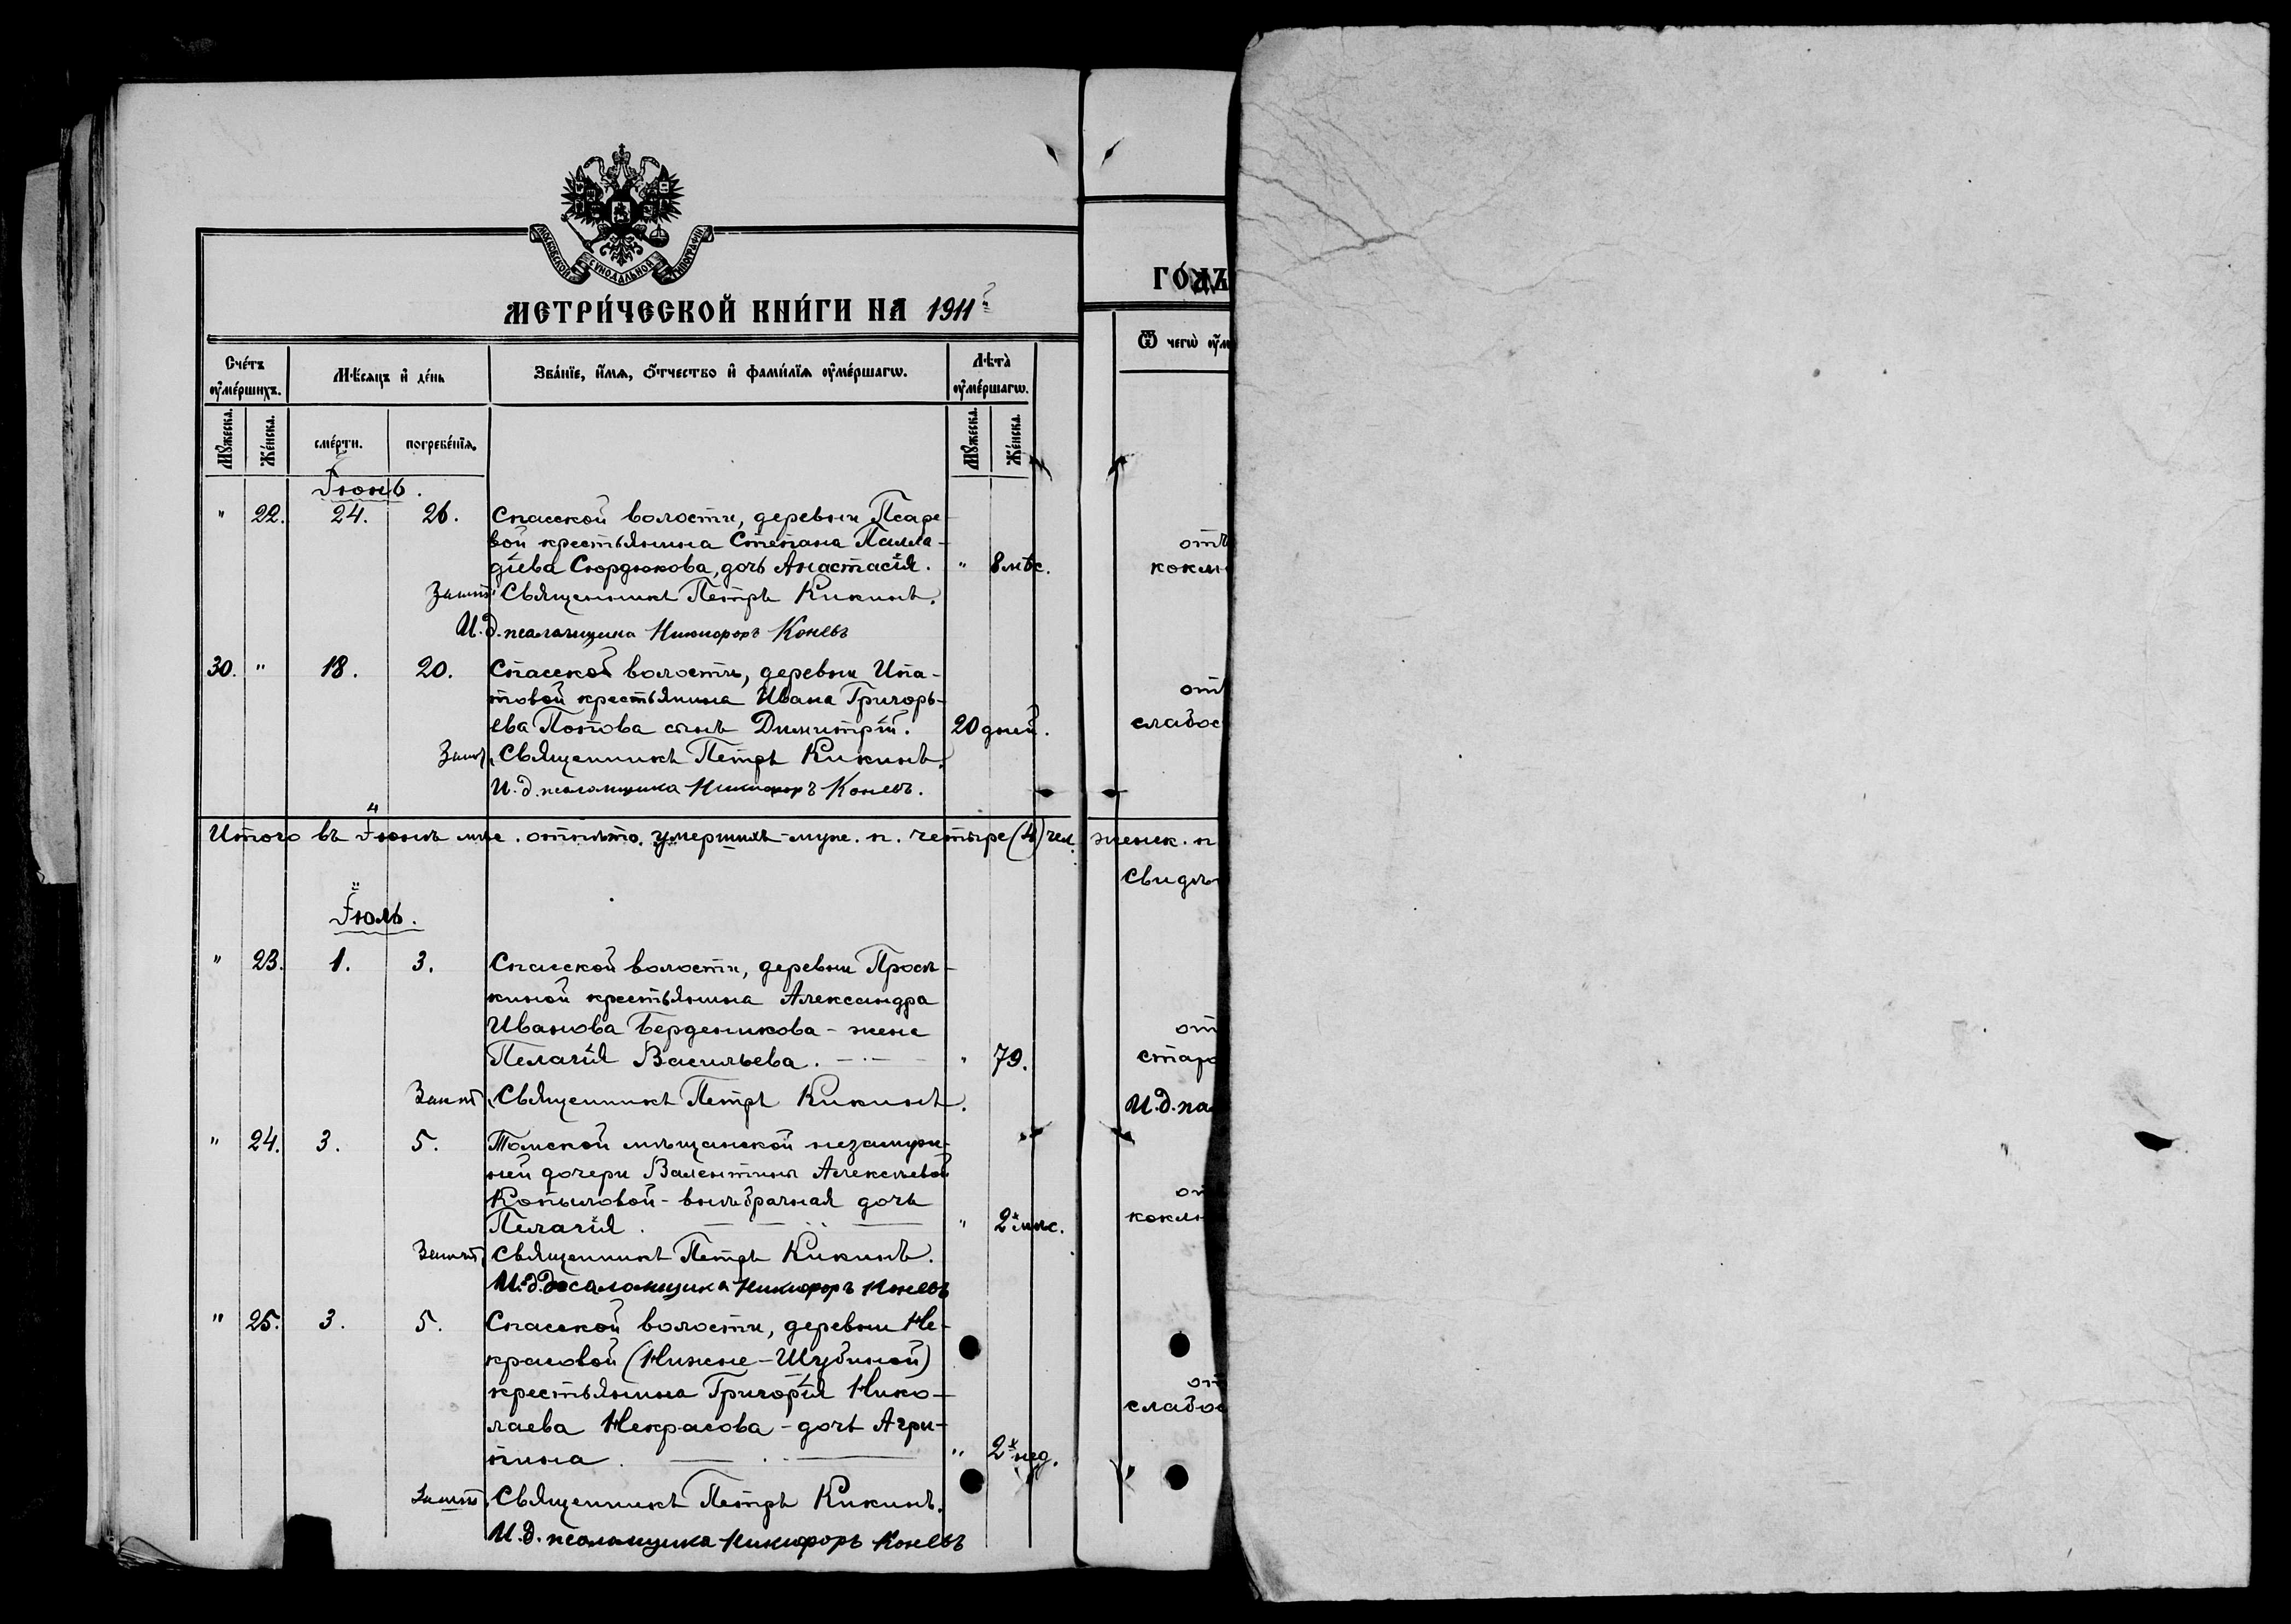 МОСКОВСКОЙ СѴНОДАЛЬНОЙ ТИПОГРАФІИ
МЕТРИ́ЧЕСКОЙ КНИ́ГИ НА 1911
ГО́ДЪ
Сче́тъ ᲂу҆ме́ршихъ.
Мѣ́сяцъ и҆ де́нь
Зва́нїе, и҆́мѧ, ѻ҆́тчество и҆ фами́лїѧ ᲂу҆ме́ршагѡ.
Лѣта̀ ᲂу҆ме́ршагѡ.
Ѿ чегѡ̀ ᲂу҆м
Мꙋ́жеска.
Же́нска.
сме́рти.
погребе́нїѧ.
Мꙋ́жеска.
Же́нска.
Іюнь.
" 22. 24. 26. Спасской волости, деревни Псаре-
вой крестьянина Степана Палла-
діева Сюрдюкова, дочь Анастасія. " 8 мѣс.
отъ
коклю
Священникъ Петръ Кикинъ.
И.д. псаломщика Никифоръ Коневъ
30. " 18. 20. Спасской волости, деревни Ипа-
товой крестьянина Ивана Григорь-
ева Попова сынъ Димитрій. 20 дней.
отъ
слабос
Священникъ Петръ Кикинъ.
И.д. псаломщика Никифоръ Коневъ.
Итого въ Іюнѣ мѣс. отпѣто умершихъ муж. п. четыре (4) чел. женск. п
Свидѣ
Іюль.
" 23. 1. 3. Спасской волости, деревни Прос-
киной крестьянина Александра
Иванова Берденикова - жена
Пелагія Васильева. " 79.
от
старо
Священникъ Петръ Кикинъ.
И.д. пса
" 24. 3. 5. Томской мѣщанской незамуж-
ней дочери Валентины Алексѣевой
Копыловой - внѣбрачная дочь
Пелагія. " 2 мѣс.
от
коклю
Священникъ Петръ Кикинъ.
И.д. псаломщика Никифоръ Коневъ
" 25. 3. 5. Спасской волости, деревни Не-
красовой (Нижне-Шубиной)
крестьянина Григорія Нико-
лаева Некрасова - дочь Агри-
пина. " 2 нед.
от
слабос
Священникъ Петръ Кикинъ.
И.д. псаломщика Никифоръ Коневъ